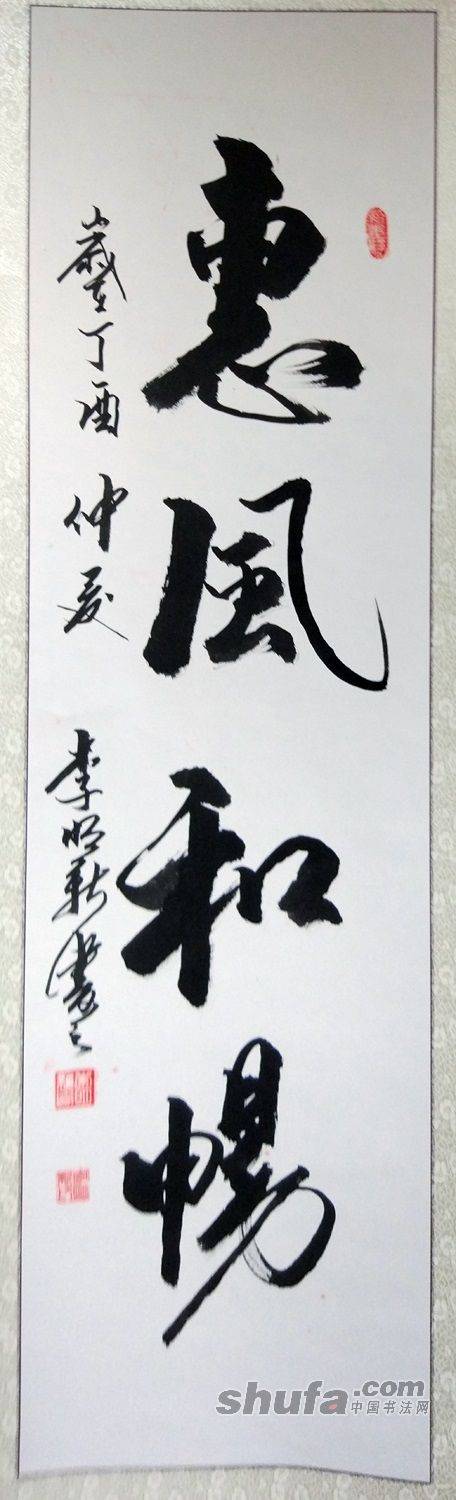 惠風和暢
歲在丁酉仲夏
李明新書
shufa.com
中国书法网